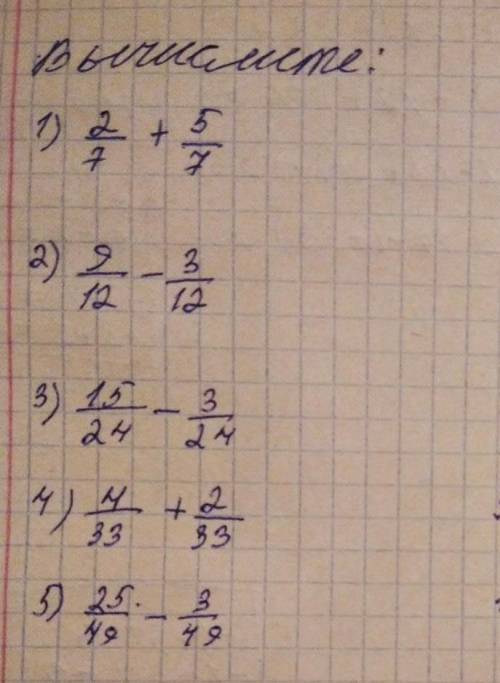 Вычислите:
1) 2/7 + 5/7
2) 9/12 - 3/12
3) 15/24 - 3/24
4) 4/33 + 2/33
5) 25/49 - 3/49